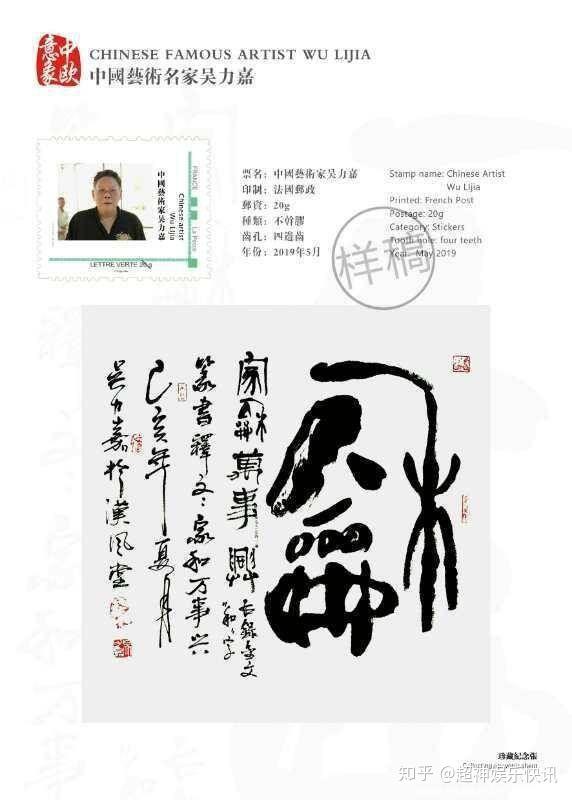 中欧
意象
CHINESE FAMOUS ARTIST WU LIJIA
中國藝術名家吴力嘉
中國藝術家吴力嘉
Chinese artist
Wu Lijia
FRANCE
La Poste
LETTRE VERTE 20g
票名：中國藝術家吴力嘉
印制：法國郵政
郵資：20g
種類：不幹膠
齒孔：四邊齒
年份：2019年5月
Stamp name: Chinese Artist
Wu Lijia
Printed: French Post
Postage: 20g
Category: Stickers
Tooth hole: four teeth
Year: May 2019
样稿
龢
家龢萬事興
長錄金文
龢之字
篆書釋文：家和万事兴
己亥年夏月
吴力嘉於漢風堂
珍藏紀念張
知乎 @超神娱乐快讯